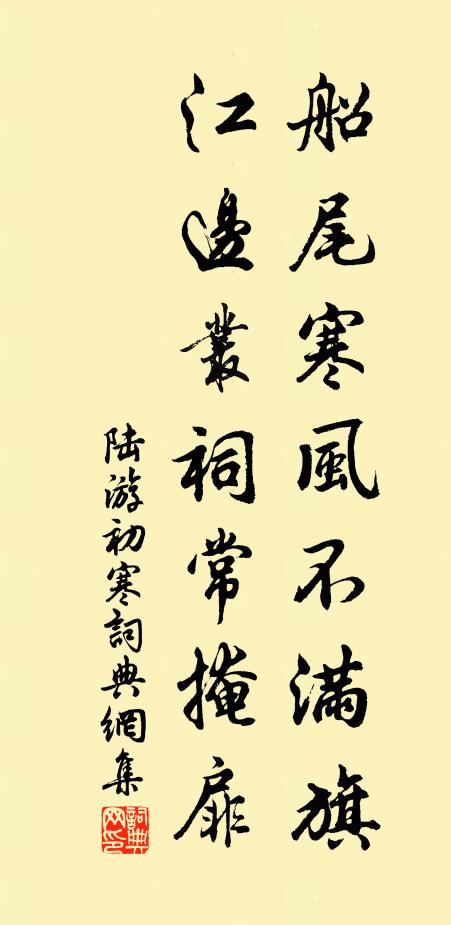 船尾寒風不满旗
江邊叢祠常掩扉
陆游初寒詞典網集
詞典网印